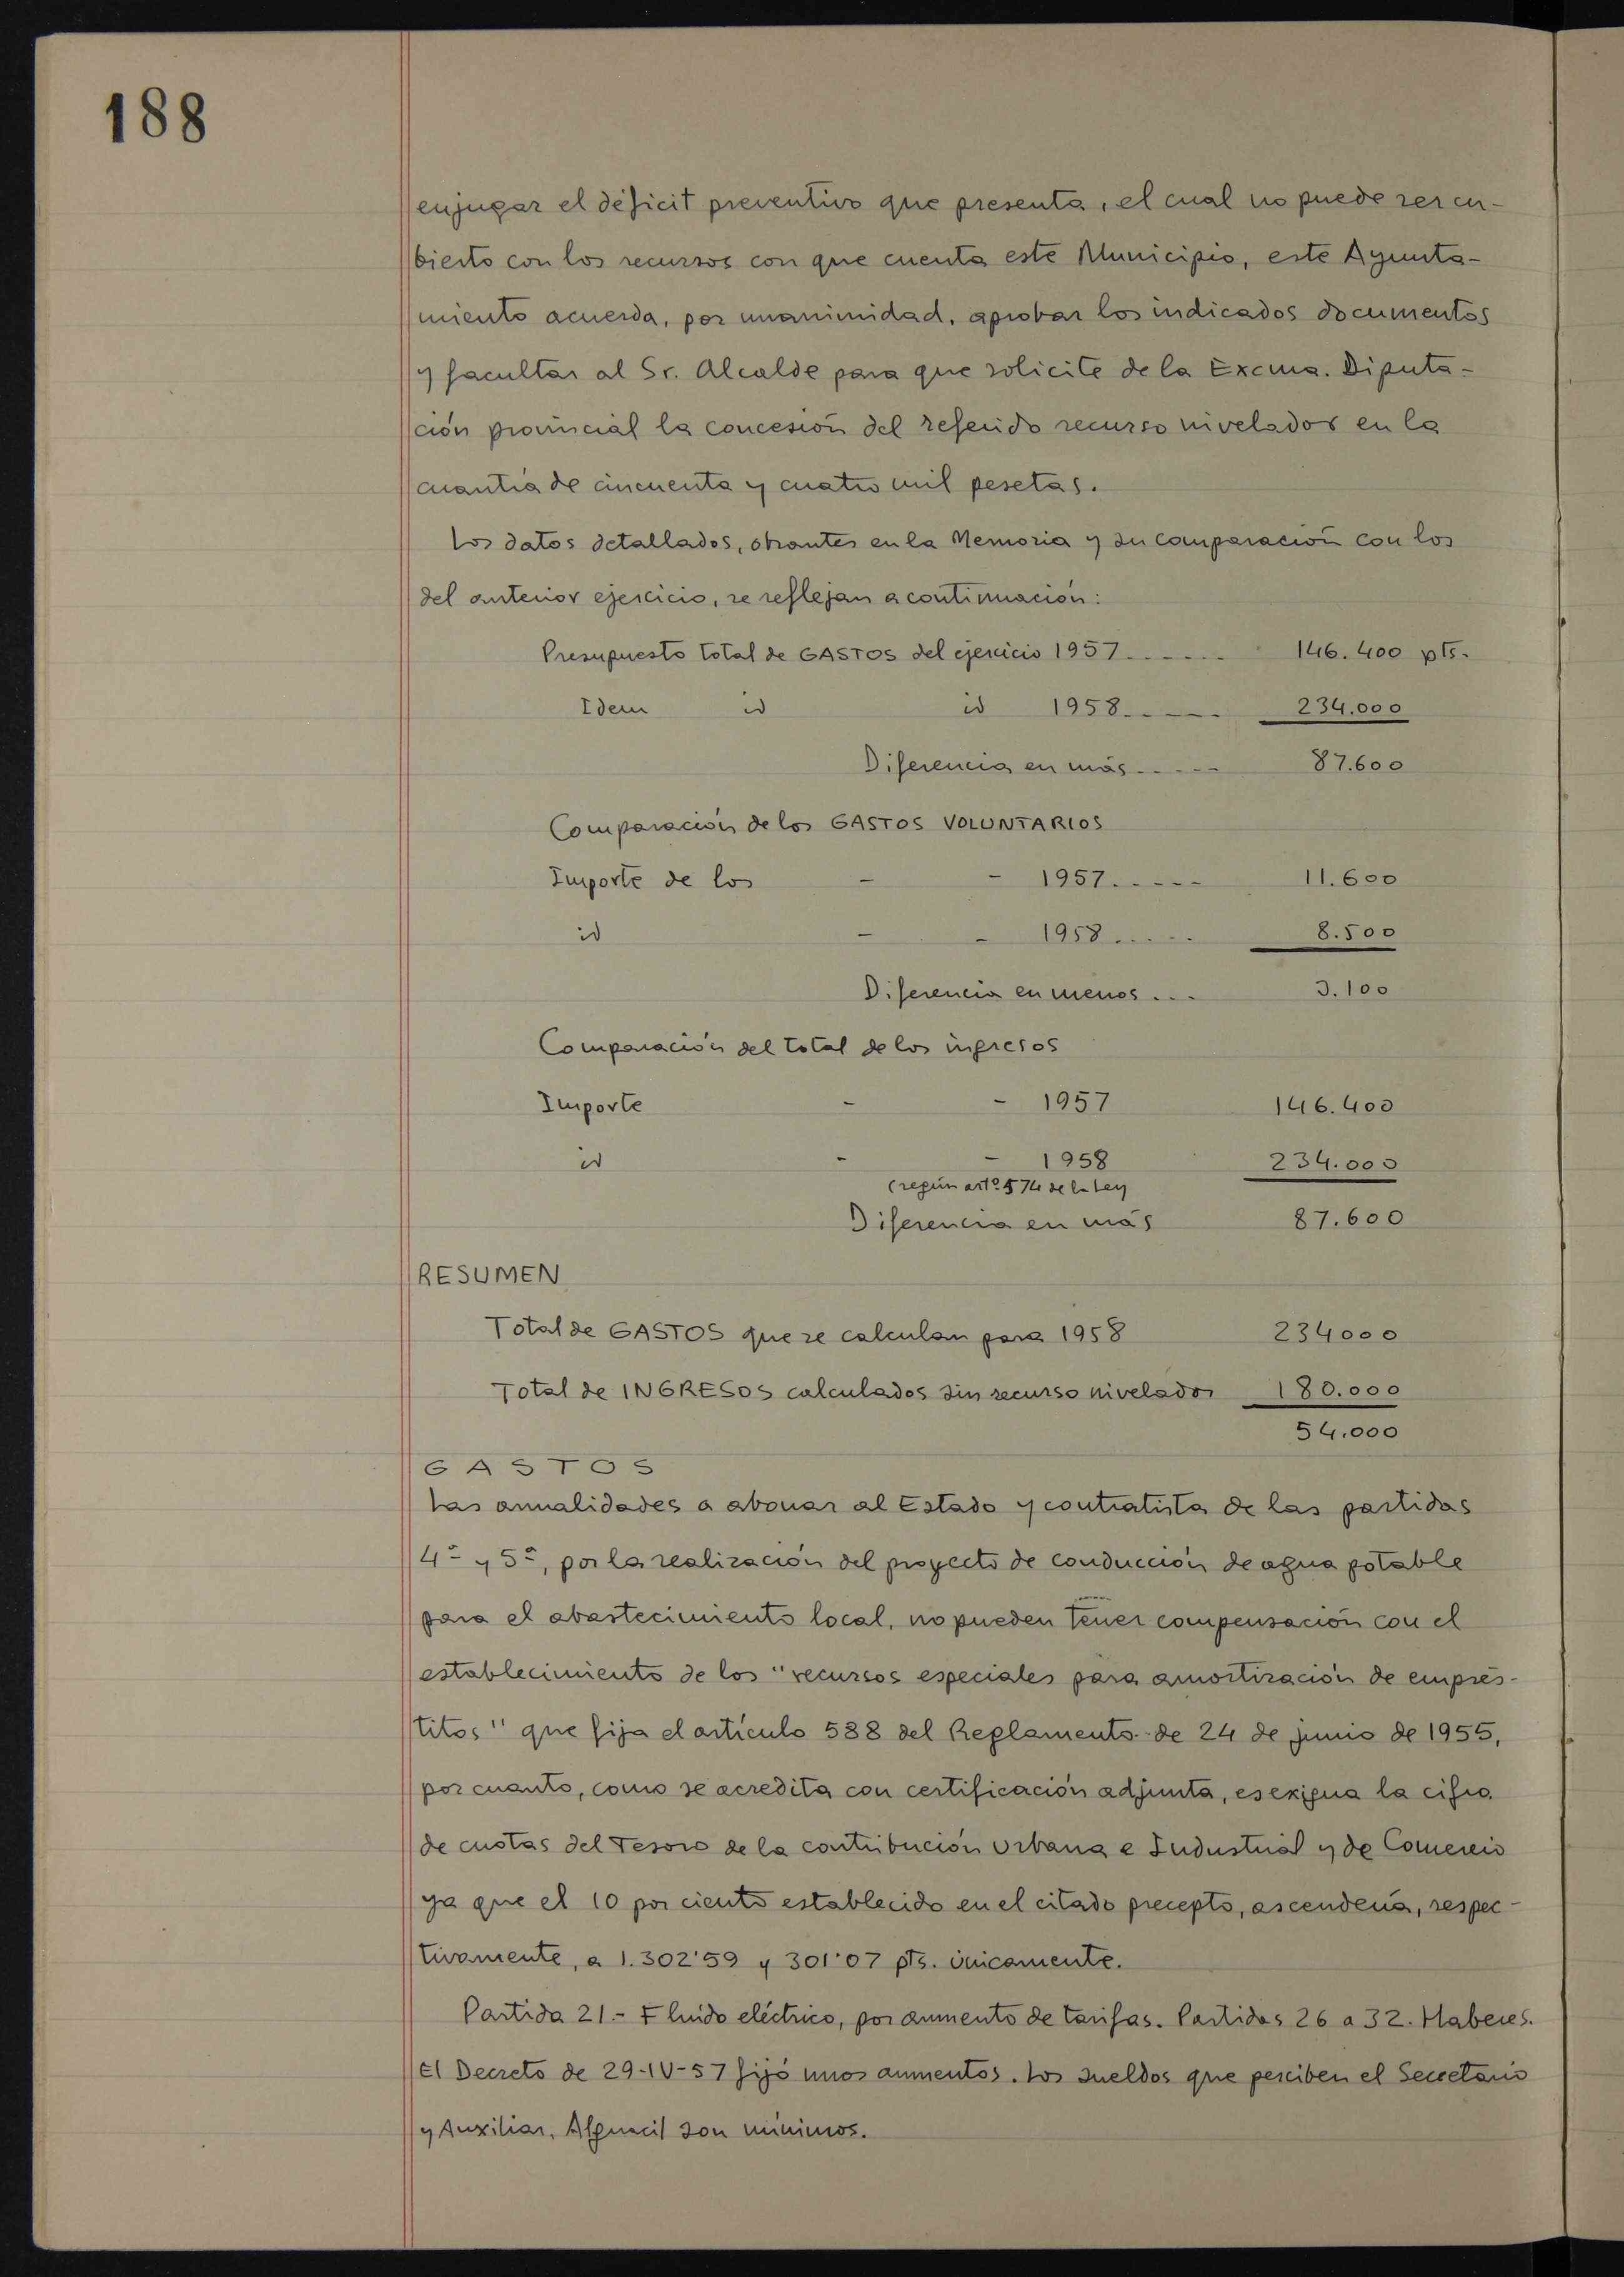 188
enjugar el déficit preventivo que presenta, el cual no puede ser cu-
bierto con los recursos con que cuenta este Municipio, este Ayunta-
miento acuerda, por unanimidad, aprobar los indicados documentos
y facultar al Sr. Alcalde para que solicite de la Excma. Diputa-
ción provincial la concesión del referido recurso nivelador en la
cuantía de cincuenta y cuatro mil pesetas.
Los datos detallados, obrantes en la Memoria y su comparación con los
del anterior ejercicio, se reflejan a continuación:
Presupuesto total de GASTOS del ejercicio 1957...... 146.400 pts.
Idem id id 1958..... 234.000
Diferencia en más..... 87.600
Comparación de los GASTOS VOLUNTARIOS
Importe de los - - 1957..... 11.600
id - - 1958..... 8.500
Diferencia en menos... 3.100
Comparación del total de los ingresos
Importe - - 1957 146.400
id - - 1958 234.000
(según artº 574 de la Ley
Diferencia en más 87.600
RESUMEN
Total de GASTOS que se calculan para 1958 234000
Total de INGRESOS calculados sin recurso nivelador 180.000
54.000
GASTOS
Las anualidades a abonar al Estado y contratista de las partidas
4ª y 5ª, por la realización del proyecto de conducción de agua potable
para el abastecimiento local, no pueden tener compensación con el
establecimiento de los "recursos especiales para amortización de emprés-
titos" que fija el artículo 588 del Reglamento de 24 de junio de 1955,
por cuanto, como se acredita con certificación adjunta, es exigua la cifra
de cuotas del Tesoro de la contribución Urbana e Industrial y de Comercio
ya que el 10 por ciento establecido en el citado precepto, ascendería, respec-
tivamente, a 1.302'59 y 301'07 pts. únicamente.
Partida 21.- Fluido eléctrico, por aumento de tarifas. Partidas 26 a 32. Haberes.
El Decreto de 29-IV-57 fijó unos aumentos. Los sueldos que perciben el Secretario
y Auxiliar, Alguacil son mínimos.